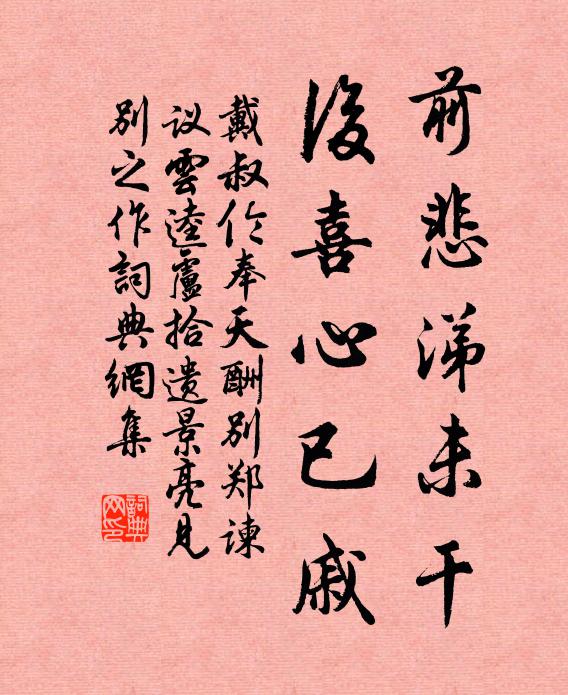 前悲涕未干
後喜心已戚
戴叔伦奉天酬别郑谏
议雲逵盧拾遗景亮见
别之作詞典網集
詞典网印